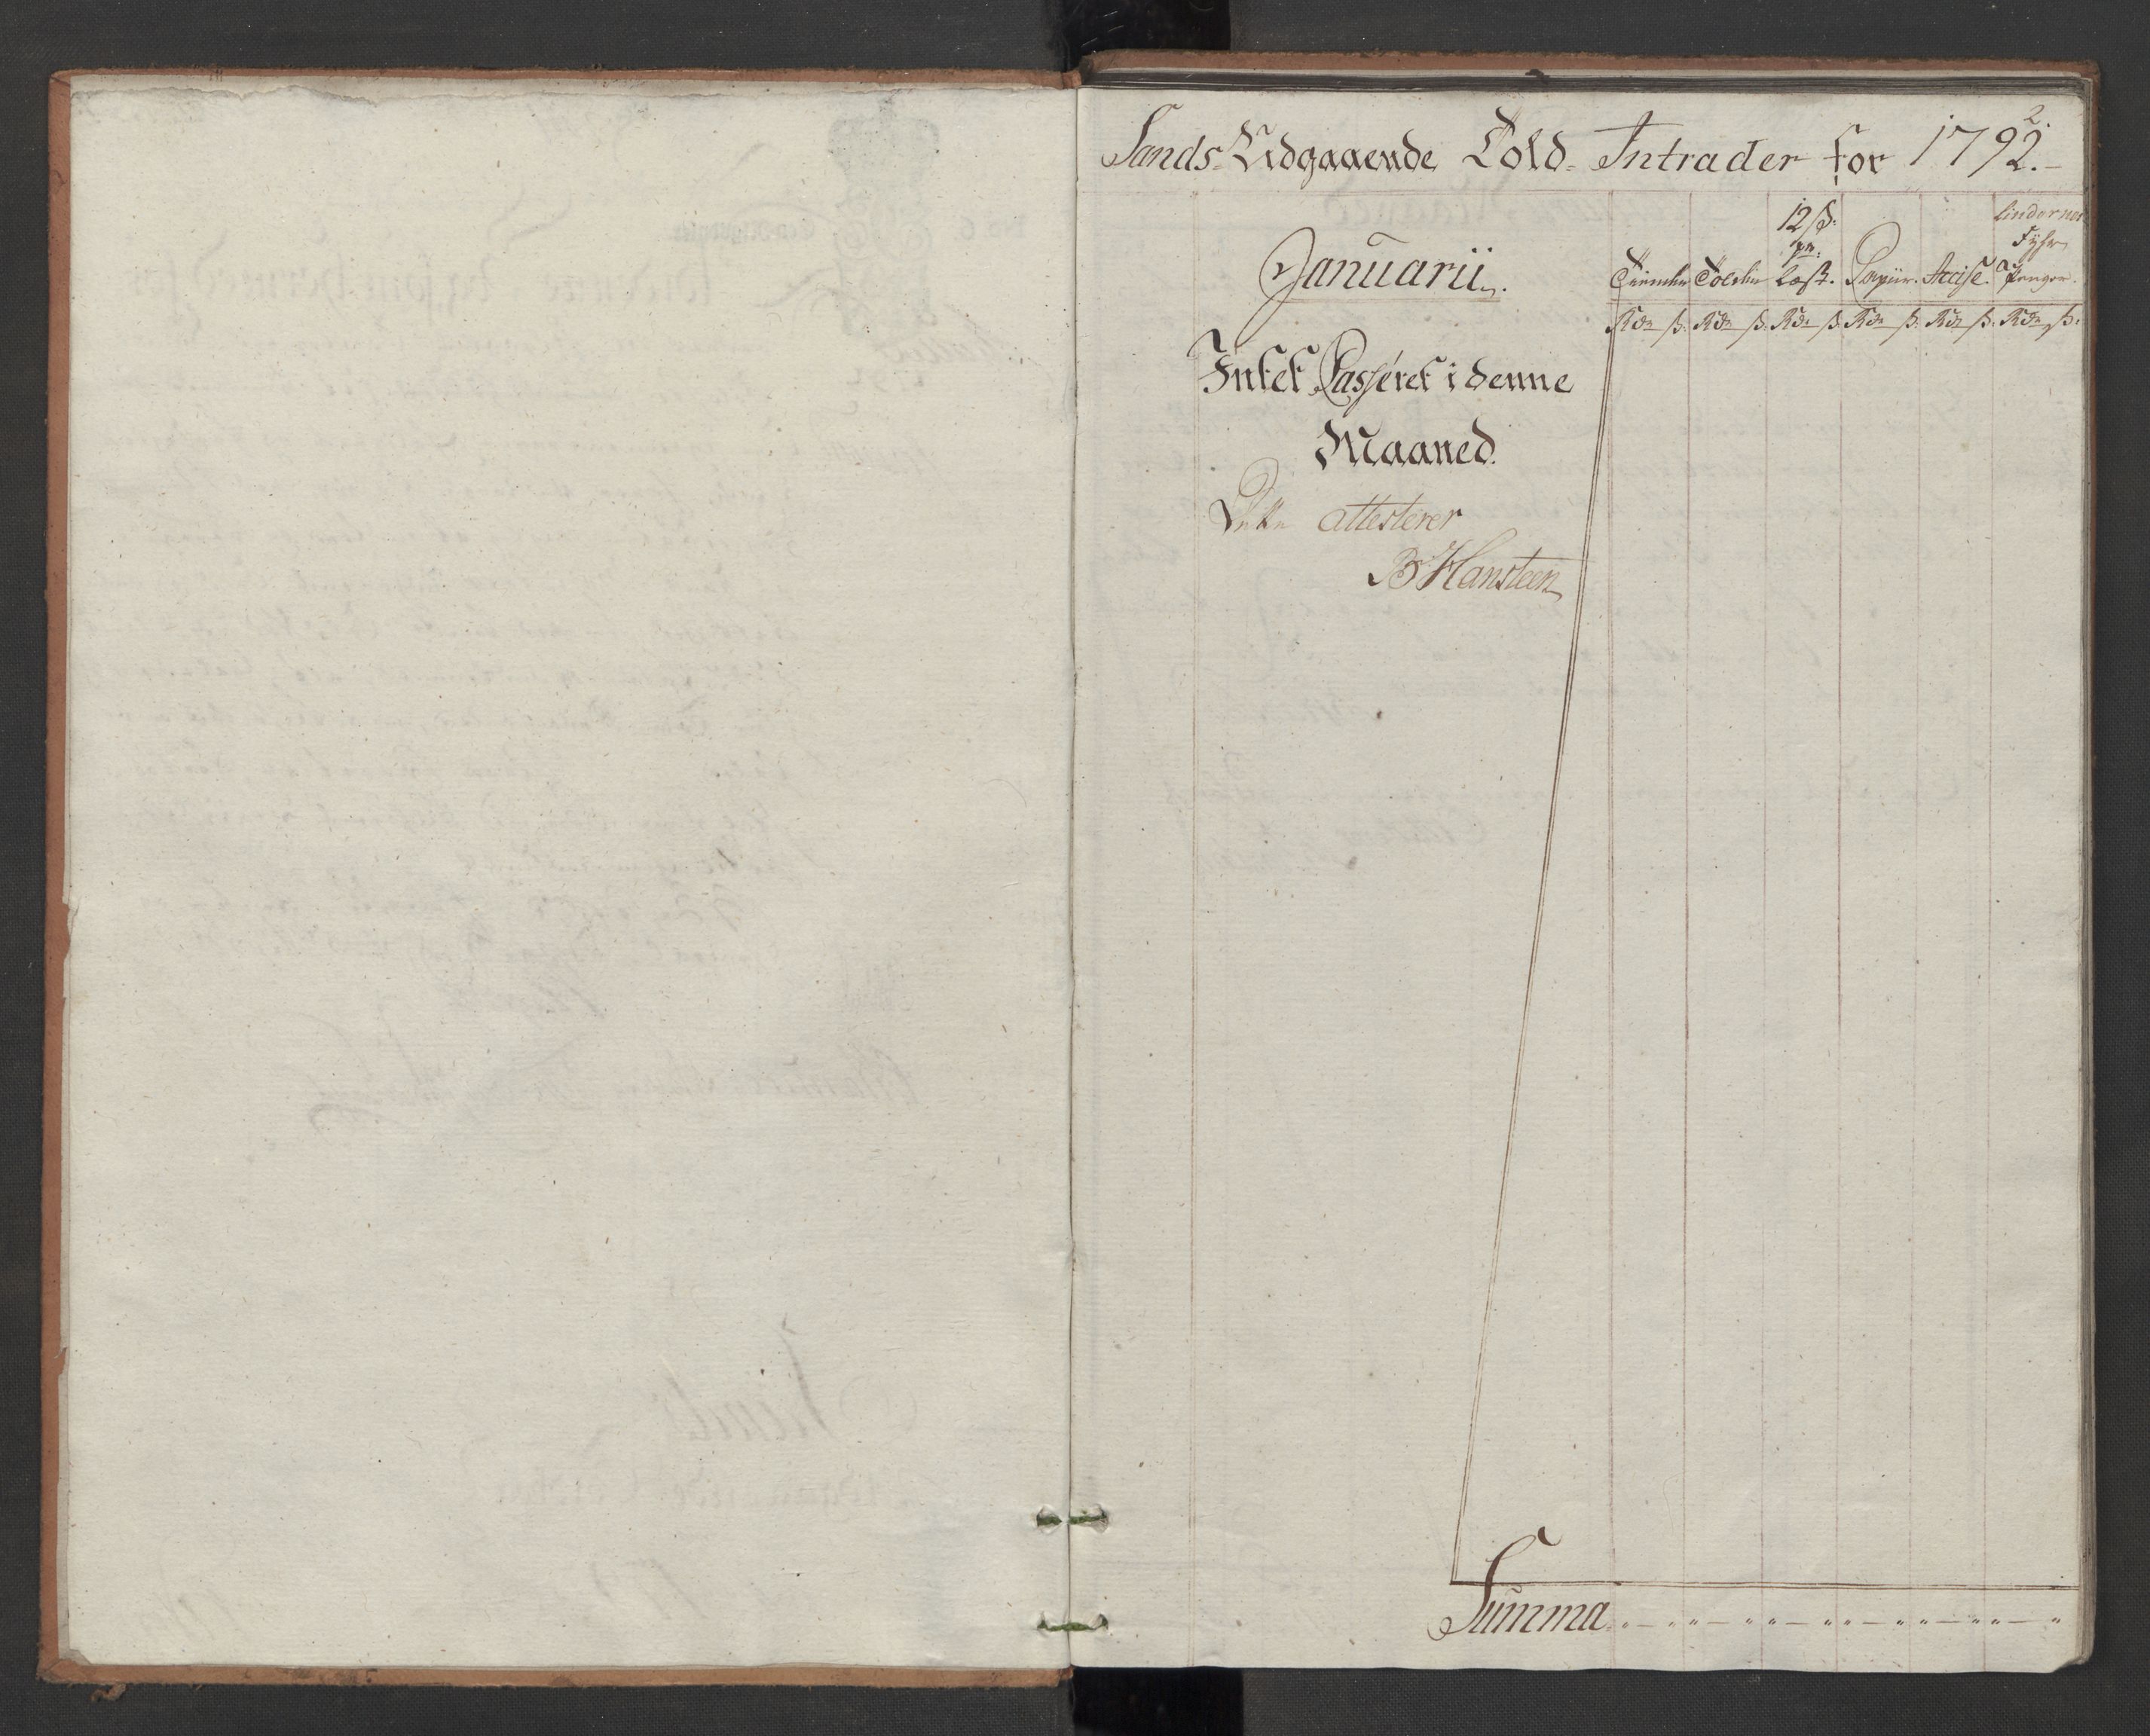 2.
Sands Udgaaende Told- Intrader for 1792.-
Januarii.
12 ß:
pr:
Læst.
Papiir.
Accise.
Lindernes
Fyhr
Penger.
Rdr ß: Rdr ß: Rdr ß: Rdr ß: Rdr ß: Rdr ß:
Intet Passeret i denne
Maaned.
Dette attesterer
B Hansteen
Summa . " — " " — " " — " " — " " — " " — "